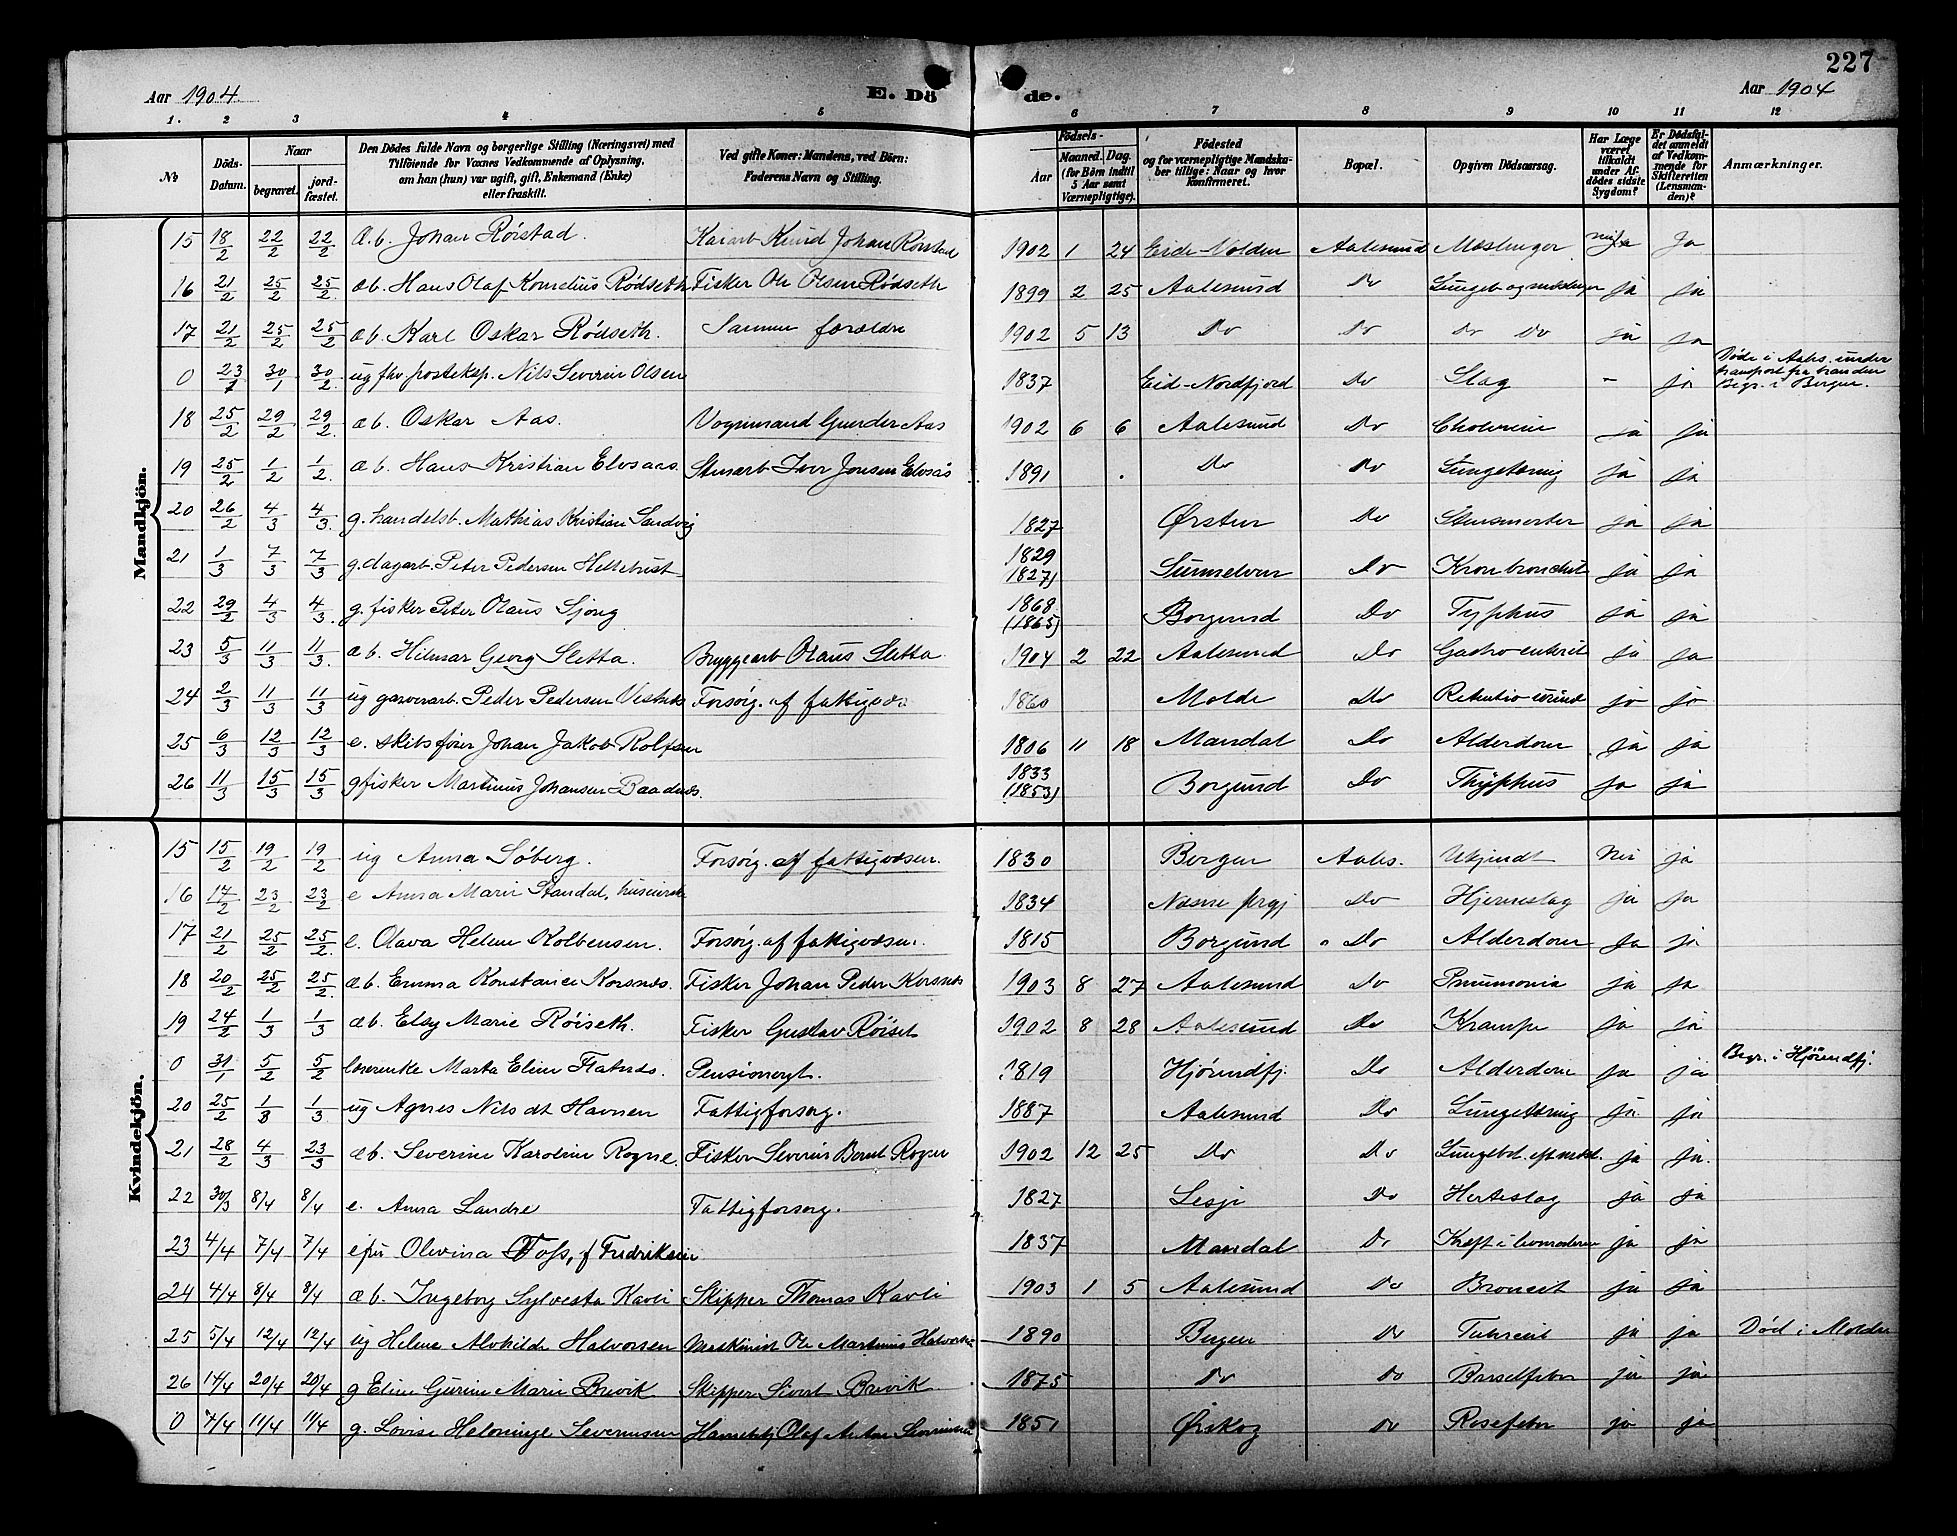 227
Aar 1904. E. Dö de. Aar 1904
1. 2 3 4 5 6 7 8 9 10 11 12
№ Döds-Datum. Naar begravet. jord-fæstet. Den Dödes fulde Navn og borgerlige Stilling (Næringsvei) med Tilföiende for Voxnes Vedkommende af Oplysning, om han (hun) var ugift, gift, Enkemand (Enke) eller fraskilt. Ved gifte Koner: Mandens, ved Börn: Faderens Navn og Stilling. Födsels- Aar Maaned. Dag. (for Börn indtil 5 Aar samt Værnepligtige). Födested og for værnepligtige Mandskaber tillige: Naar og hvor konfirmeret. Bopæl. Opgiven Dödsaarsag. Har Læge været tilkaldt under Afdödes sidste Sygdom? Er Dödsfaldet anmeldt af Vedkommende for Skifteretten (Lensmanden)? Anmærkninger.
Mandkjön.
15 18/2 22/2 22/2 Æ.b. Johan Röistad. Kaiarb Knud Johan Rorstad 1902 1 24 Eide-Volden Aalesund Meslinger Ja
16 21/2 25/2 25/2 æb. Hans Olaf Kornelius Rødseth Fisker Ole Olsen Rødseth 1899 2 25 Aalesund Do Lungeb og meslinger ja ja
17 21/2 25/2 25/2 æb. Karl Oskar Rødseth. Samme forældre 1902 5 13 Do Do Do Do ja ja
0 23/1 30/1 30/2 ug fhv posteksp. Nils Severin Olsen 1837 Eid-Nordfjord Do Slag - ja Døde i Aales. under transport fra branden Begr. i Bergen.
18 25/2 29/2 29/2 æb. Oskar Aas. Vognmand Gunder Aas 1902 6 6 Aalesund Do Cholerine ja ja
19 25/2 1/2 1/2 æb. Hans Kristian Elvsaas. Stenarb Iver Jonsen Elvsås 1891 Do Do Lungetæring ja ja
20 26/2 4/3 4/3 g. handelsb. Mathias Kristian Sandvig 1827 Ørsten Do Stensmerter ja ja
21 1/3 7/3 7/3 g. dagarb. Peter Pedersen Hellebust 1829 1827) Sunnelven Do Kron bronchit ja ja
22 29/2 4/3 4/3 g. fisker Peter Olaus Sjong 1868 (1865) Borgund Do Typhus ja ja
23 5/3 11/3 11/3 æb. Hilmar Georg Sletta. Bryggearb Olaus Sletta 1904 2 22 Aalesund Do Gastro enterit ja ja
24 2/3 11/3 11/3 ug garverarb. Peder Pedersen Vestnes Forsørg. af fattigvæs. 1860 Molde Do Retentio urind jo jo
25 6/3 12/3 12/3 e. skibsfører Johan Jakob Rolfsen 1806 11 18 Mandal Do Alderdom ja ja
26 11/3 15/3 15/3 g fisker Martinus Johansen Baadnes. 1833 (1853) Borgund Do Thyphus ja ja
Kvindekjön.
15 15/2 19/2 19/2 ug Anna Søberg. Forsørg. af fattigvæsen. 1830 Bergen Aales. Ukjendt Nei ja
16 17/2 23/2 23/2 e Anna Marie Standal, 1834 Næsse prgj Do Hjerneslag ja ja
17 21/2 25/2 25/2 e. Olava Helene Kolbensen. Forsørg. af fattigvæsen. 1815 Borgund Do Alderdom Ja ja
18 20/2 25/2 25/2 æb. Emma Konstance Korsnes. Fisker Johan Peder Korsnes 1903 8 27 Aalesund Do Pneumonia ja ja
19 24/2 1/3 1/3 æb. Elsy Marie Røiseth. Fisker Gustav Røiset 1902 8 28 Aalesund Do Krampe ja ja
0 31/1 5/2 5/2 lærerenke Marta Eline Flatnes. Pensioneret. 1819 Hjørundfj. Do Alderdom ja ja Begr. i Hjørundfj.
20 25/2 1/3 1/3 ug Agnes Nilsdt Havnen Fattigforsørg. 1887 Aalesund Do Lungetæring ja ja
21 28/2 4/3 23/3 æb. Severine Karoline Rogne. Fisker Severin Bernt Rogne 1902 12 25 Do Do Lungebet. eft mesl. ja ja.
22 30/3 8/4 8/4 e. Anna Landre Fattigforsørg. 1827 Lesje Do Herteslag ja ja
23 4/4 7/4 7/4 efru Olevina Foss, f Fredriksen 1837 Mandal Do Kræft i livmoderen ja ja
24 4/4 8/4 8/4 æb. Ingeborg Sylvesta Kavli Skipper Thomas Kavli 1903 1 5 Aalesund Do Broncit ja ja
25 5/4 12/4 12/4 ug Helene Alvhilde Halvorsen Maskinist Ole Martinius Halvorsen 1890 Bergen Do ja ja Død i Molde
26 14/4 20/4 20/4 g Eline Gurine Marie Brevik Skipper Sivert Brevik. 1875 Do Do Barselfeber ja ja
0 7/4 11/4 11/4 g. Lovise Severinsen Olaf Anton Severinsen 1851 Ørskog Do Rosefeber ja ja